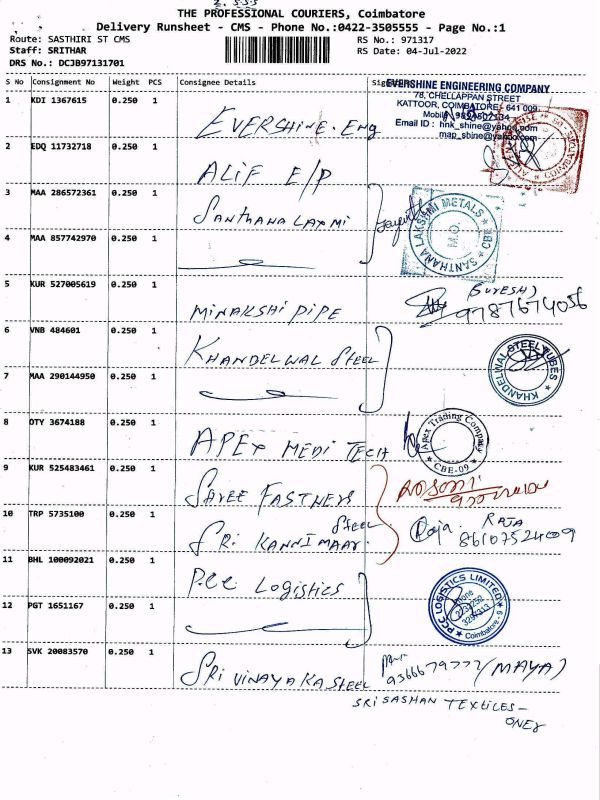 THE PROFESSIONAL COURIERS, Coimbatore
Delivery Runsheet - CMS - Phone No.:0422-3505555 - Page No.:1
Route: SASTHIRI ST CMS
RS No.: 971317
Staff: SRITHAR
RS Date: 04-Jul-2022
DRS No.: DCJB97131701
S No Consignment No Weight PCS Consignee Details
EVERSHINE ENGINEERING COMPANY
78, CHELLAPPAN STREET
KATTOOR, COIMBATORE - 641 009.
Email ID : hnk_shine@yahoo.com
map_shine@yahoo.com
1 KDI 1367615 0.250 1 EVERSHINE. Eng
2 EDQ 11732718 0.250 1 ALIF E/P
3 MAA 286572361 0.250 1 SANTHANA LAXMI
SANTHANA LAKSHMI METALS
M.O.
CBE
4 MAA 857742970 0.250 1
5 KUR 527005619 0.250 1 MINAKSHI PIPE
(SURESH)
9787674056
6 VNB 484601 0.250 1 KHANDELWAL Steel
KHANDELWAL STEEL TUBES
7 MAA 290144950 0.250 1
8 OTY 3674188 0.250 1 APEX MEDI TECH
Apex Trading Company
CBE-09
9 KUR 525483461 0.250 1 SAREE FASTNERS
10 TRP 5735100 0.250 1 SRI KANNIMAAR Steel
Raja RAJA
11 BHL 100092021 0.250 1 P.C.C LOGISTICS
PCC LOGISTICS LIMITED
Phone
Coimbatore - 9
12 PGT 1651167 0.250 1
13 SVK 20083570 0.250 1 SRI VINAYAKA STEEL
(MAYA)
SRI SASHAN TEXTILES -